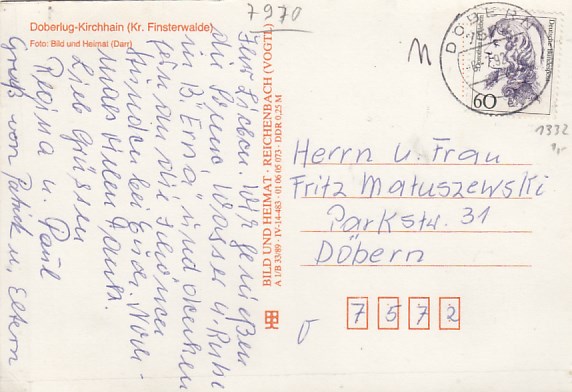 7970
Doberlug-Kirchhain (Kr. Finsterwalde)
Foto: Bild und Heimat (Darr)
Ihr Lieben. Wir genießen
die Sonne, Wasser u. Ruhe
in B'Erna und denken
an die
Stunden bei Euch.
vielen Dank.
Lieb grüßen
Regina u. Paul
Gruß von Patrick u. Eltern
BILD UND HEIMAT · REICHENBACH (VOGTL)
A 1/B 33/89 · IV-14-483 · 01 06 05 073 · DDR 0,25 M
DÖBERN
Deutsche Bundespost
60
1332
Herrn u. Frau
Fritz Matuszewski
Parkstr. 31
Döbern
7572